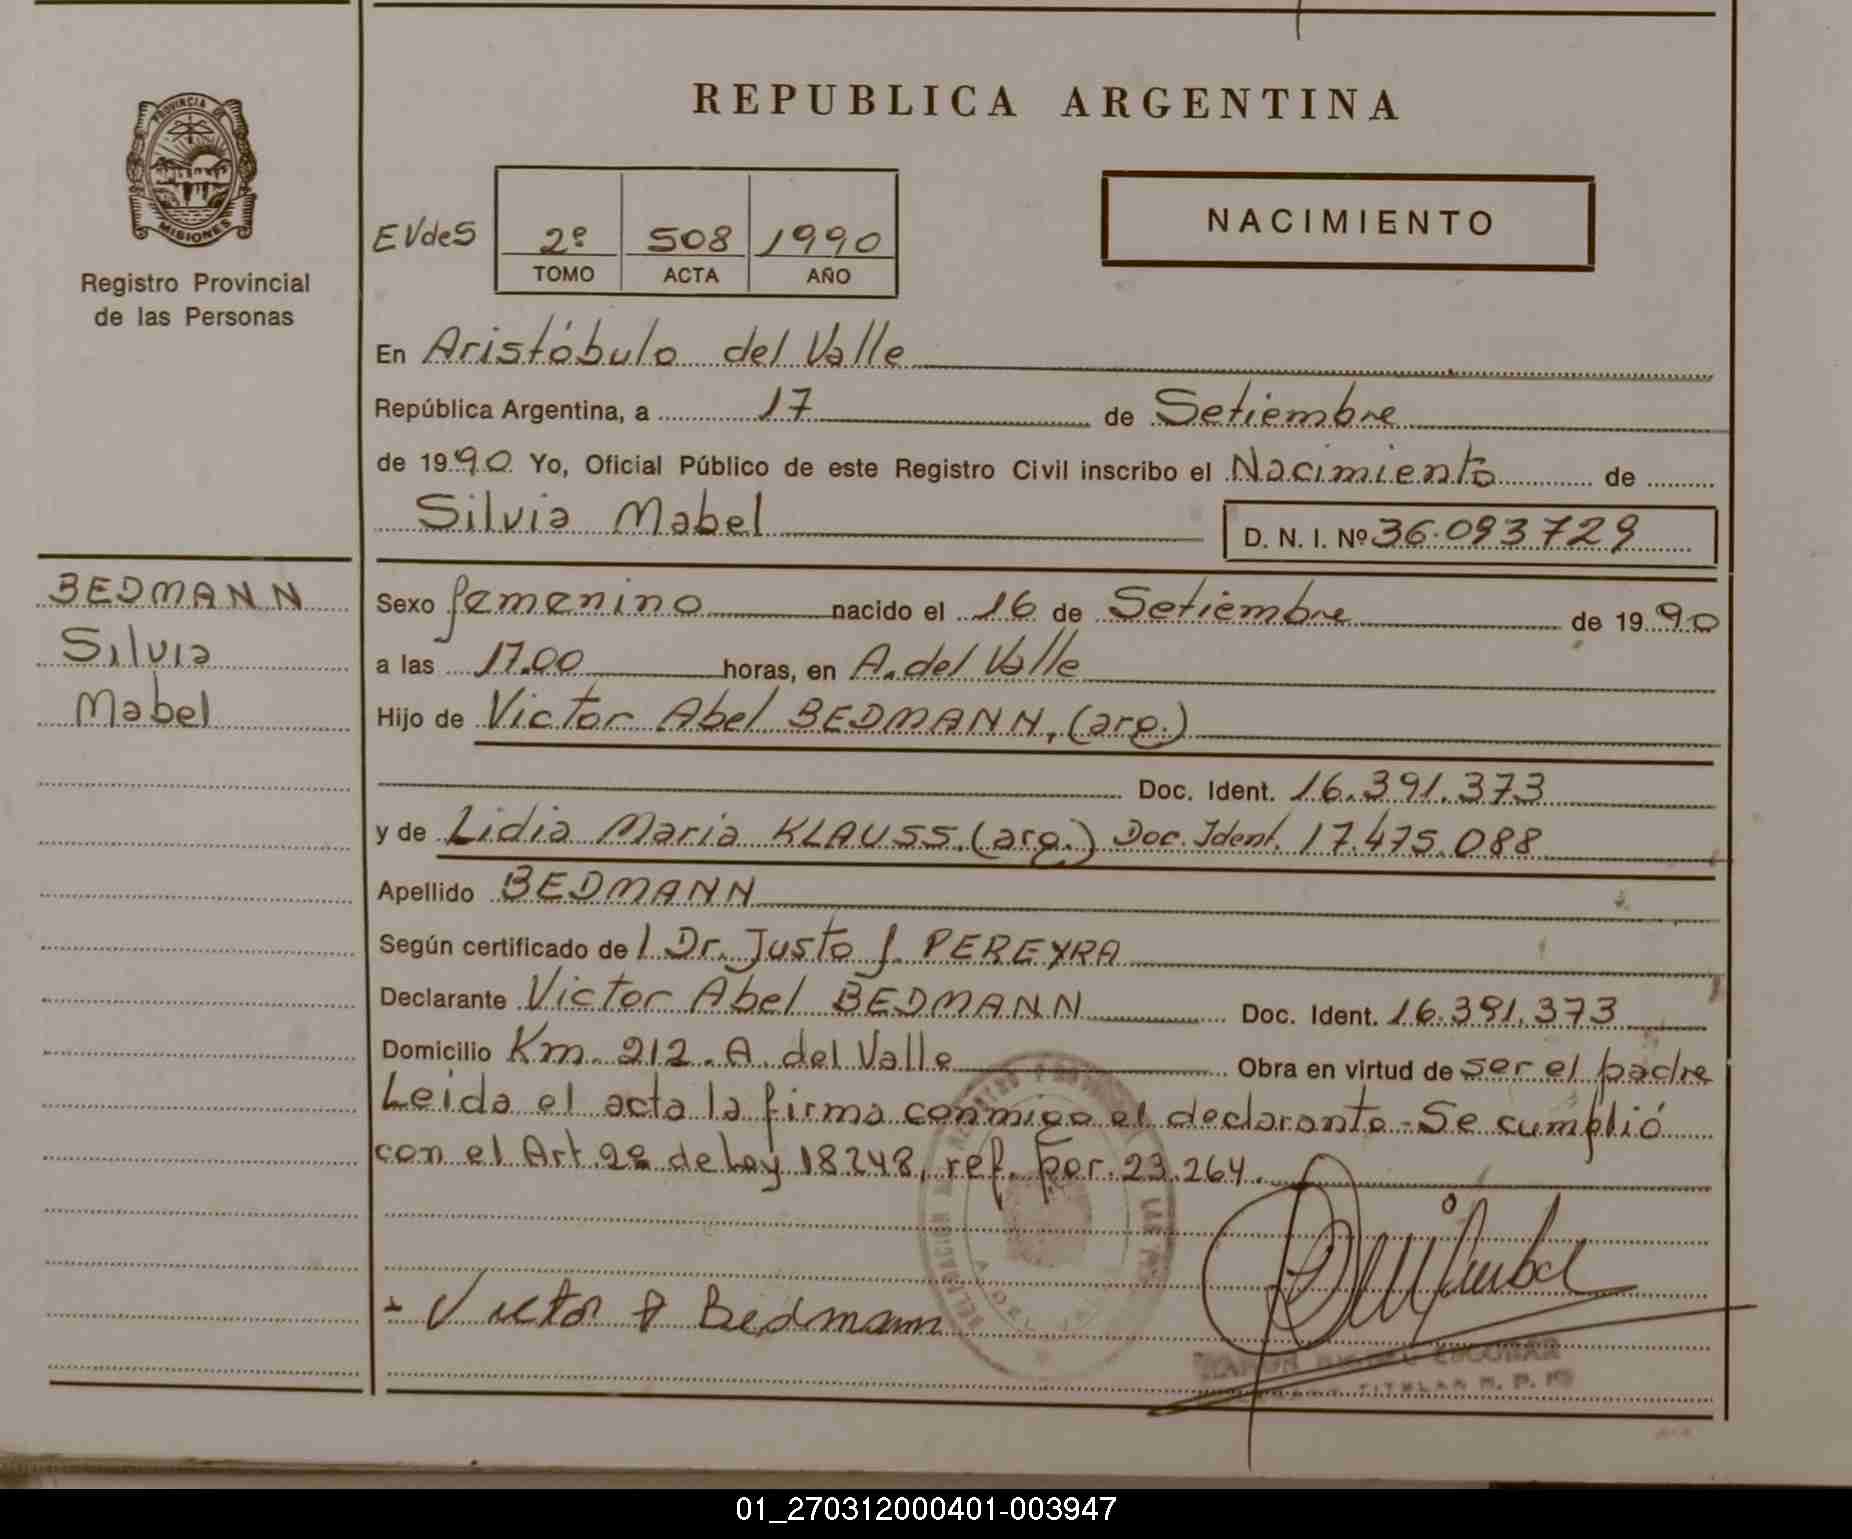 REPUBLICA ARGENTINA
PROVINCIA DE
MISIONES
Registro Provincial
de las Personas
EVdeS
2º 508 1990
TOMO ACTA AÑO
NACIMIENTO
En Aristóbulo del Valle
República Argentina, a 17 de Setiembre
de 1990 Yo, Oficial Público de este Registro Civil inscribo el Nacimiento de
Silvia Mabel D. N. I. Nº 36.093729
BEDMANN
Silvia
Mabel
Sexo femenino nacido el 16 de Setiembre de 1990
a las 17.00 horas, en A. del Valle
Hijo de Victor Abel BEDMANN, (arg.)
Doc. Ident. 16.391.373
y de Lidia Maria KLAUSS. (arg.) Doc. Ident. 17.475.088
Apellido BEDMANN
Según certificado de l Dr. Justo J. PEREYRA
Declarante Victor Abel BEDMANN Doc. Ident. 16.391.373
Domicilio Km. 212. A. del Valle Obra en virtud de ser el padre
Leida el acta la firma conmigo el declarante - Se cumplió
con el Art. 2º de Ley 18248, ref. por. 23.264.
Victor A Bedmann
ESCOBAR
TITULAR R. P.
01_270312000401-003947